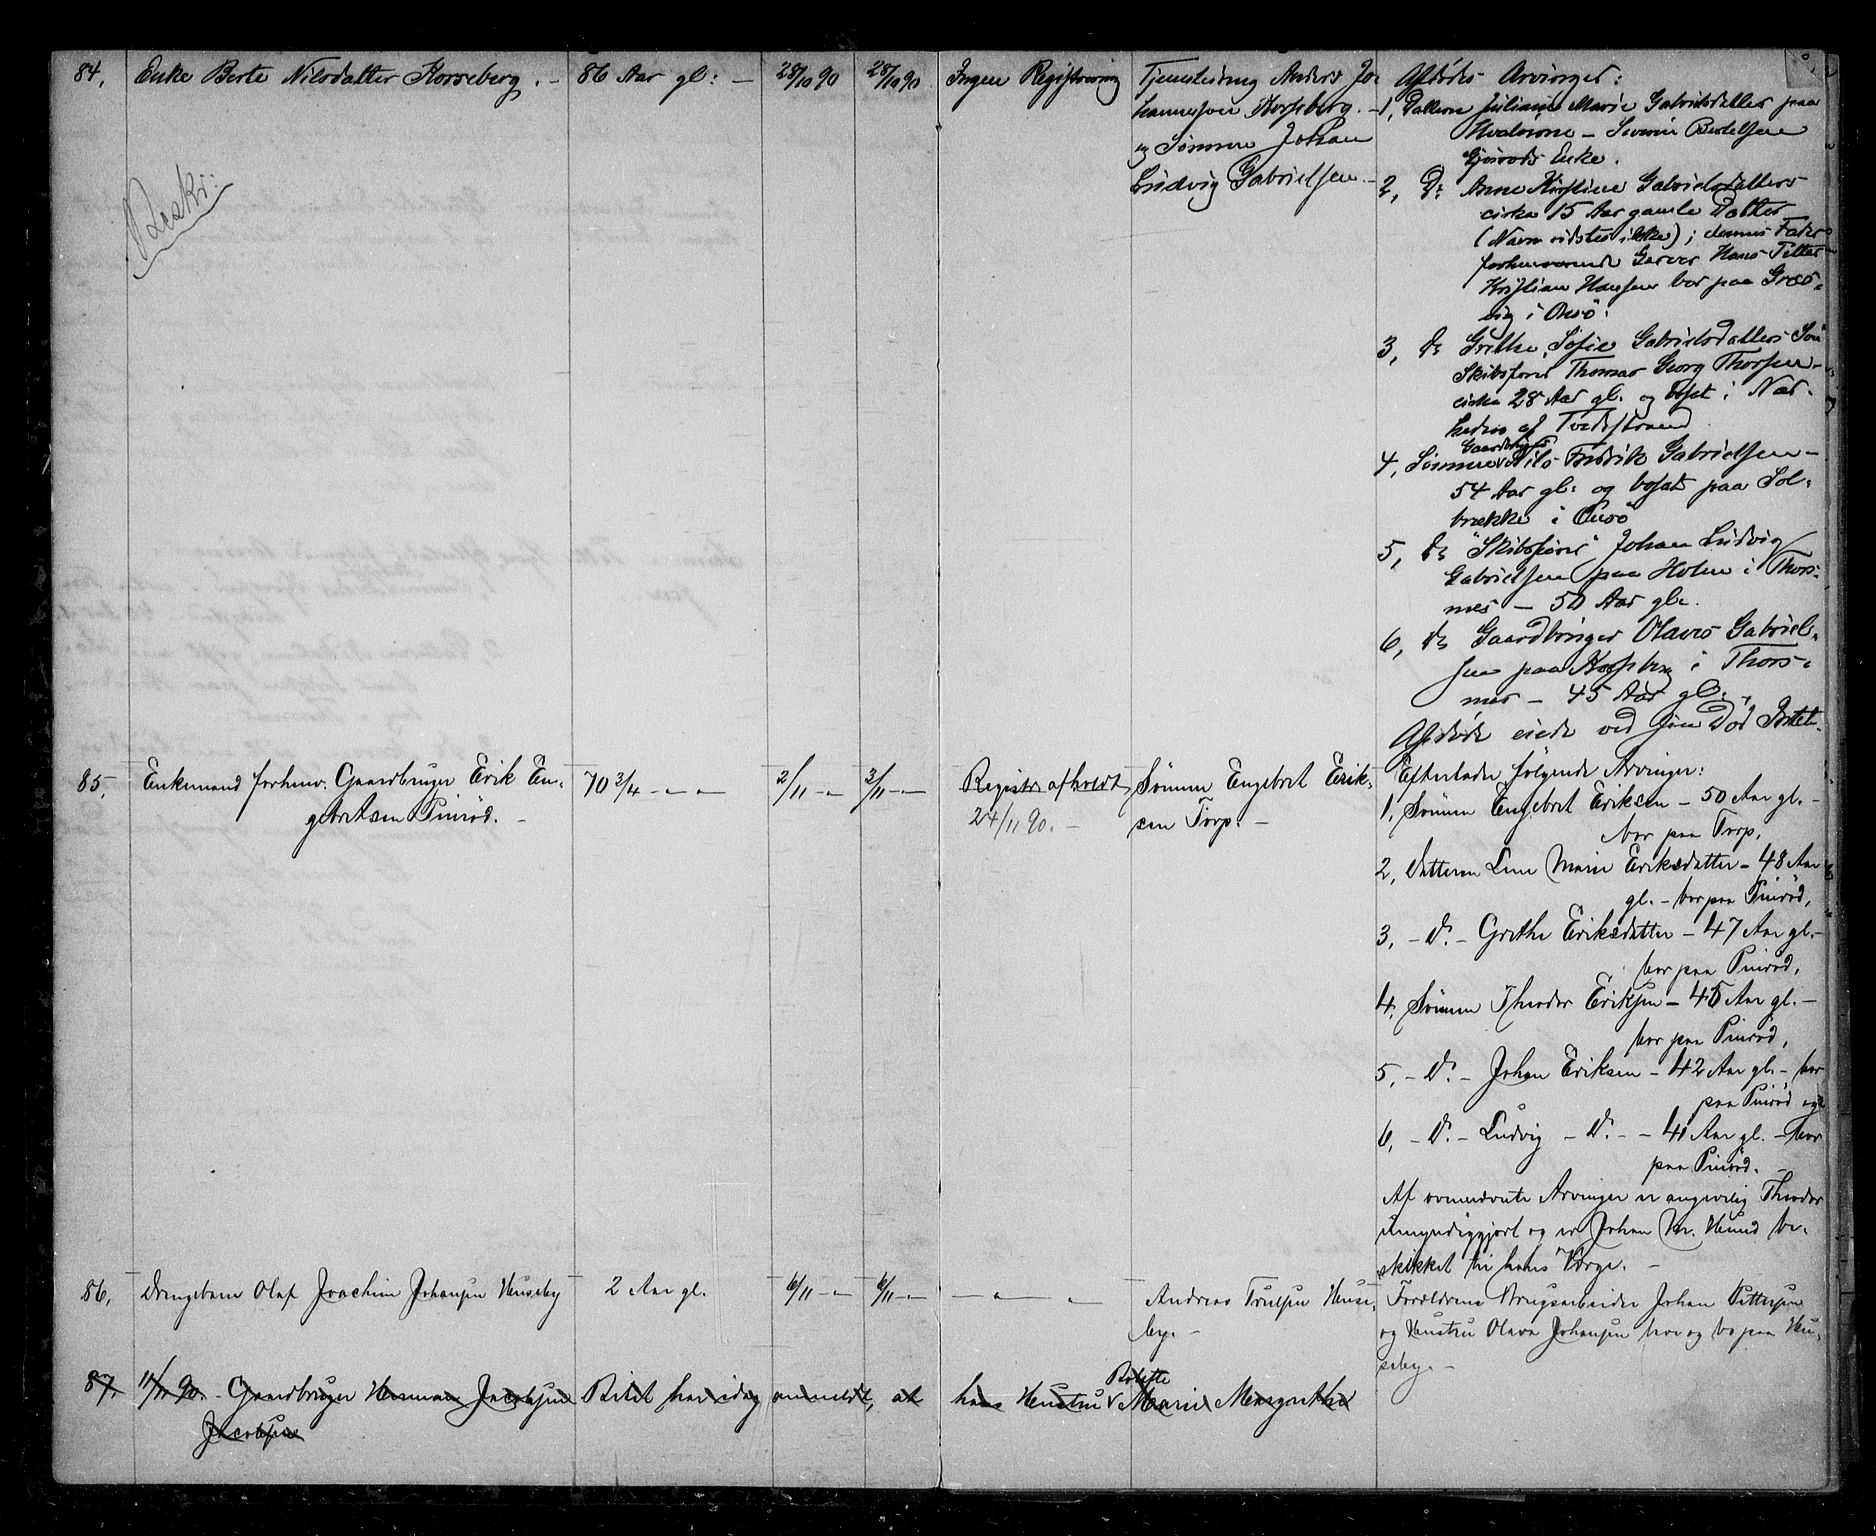 84, Enke Berte Nilsdatter Korseberg. — 86 Aar gl: — 28/10 90 28/10 90 Ingen Registrering Tjenestedreng Anders Jo=
hannesen Korsberg. —
og Sønnen Johan
Ludvig Gabrielsen. —
Afdødes Arvinger:
1, Datteren Juliane Marie Gabrielsdatter paa
Hvalerøne — Severin Bertelsen
Gjerøds Enke.
2, Do Anne Kirstine Gabrielsdatters
cirka 15 Aar gamle Datter
(Navn vidstes ikke); dennes Fader
forhenværende Garver Hans Petter
Kristian Hansen bor paa Græs=
vig i Onsø.
3, Do Grethe Sofie Gabrielsdatters Søn
Skibsfører Thomas Georg Thorsen —
cirka 28 Aar gl. og bosat i Nær=
heden af Tvedestrand
Gaardbruger
4, Sønnen Nils Fredrik Gabrielsen —
54 Aar gl: og bosat paa Sol=
brække i Onsø
5, Do "Skibsfører" Johan Ludvig
Gabrielsen paa Holen i Thors=
nes — 50 Aar gl.
6, Do Gaardbruger Olaves Gabriel=
sen paa Korsberg i Thors=
nes — 45 Aar gl.
Afdøde eiede ved sin Død
85, Enkemand forhenv. Gaardbruger Erik En=
gebretsen Pinrød. —
70 3/4 — " — 2/11 — " 3/11 — " —
Registr. afholdt
24/11 90. —
Sønnen Engebret Erik=
sen Torp. —
Efterlader følgende Arvinger:
1, Sønnen Engebret Eriksen — 50 Aar gl. —
bor paa Torp,
2, Datteren Lene Marie Eriksdatter — 48 Aar
gl. — bor paa Pinrød,
3, — Do. — Grethe Eriksdatter — 47 Aar gl. —
bor paa Pinrød,
4, Sønnen Theodor Eriksen — 45 Aar gl. —
bor paa Pinrød,
5, — Do. — Johan Eriksen — 42 Aar gl. — bor
paa Pinrød og
6, — Do. — Ludvig — Do. — — 40 Aar gl. — bor
paa Pinrød. —
Af ovennævnte Arvinger er angivelig Theodor
umyndiggjort og er Johan Hr. Hund be=
skikket til hans Værge. —
86, Drengebarn Olaf Joachim Johansen Huseby 2 Aar gl. 6/11 — " 6/11 — " — — " — " —
Andreas Trulsen Huse=
by. —
Forældrene Brugsarbeider Johan Pettersen
og Hustru Olava Johansen leve og bo paa Hu=
seby. —
87, 11/11 90. - Gaardbruger Herman Jacobsen Bilet har idag anmeldt, at hans Hustru Marie Margrethe
Jacobsen